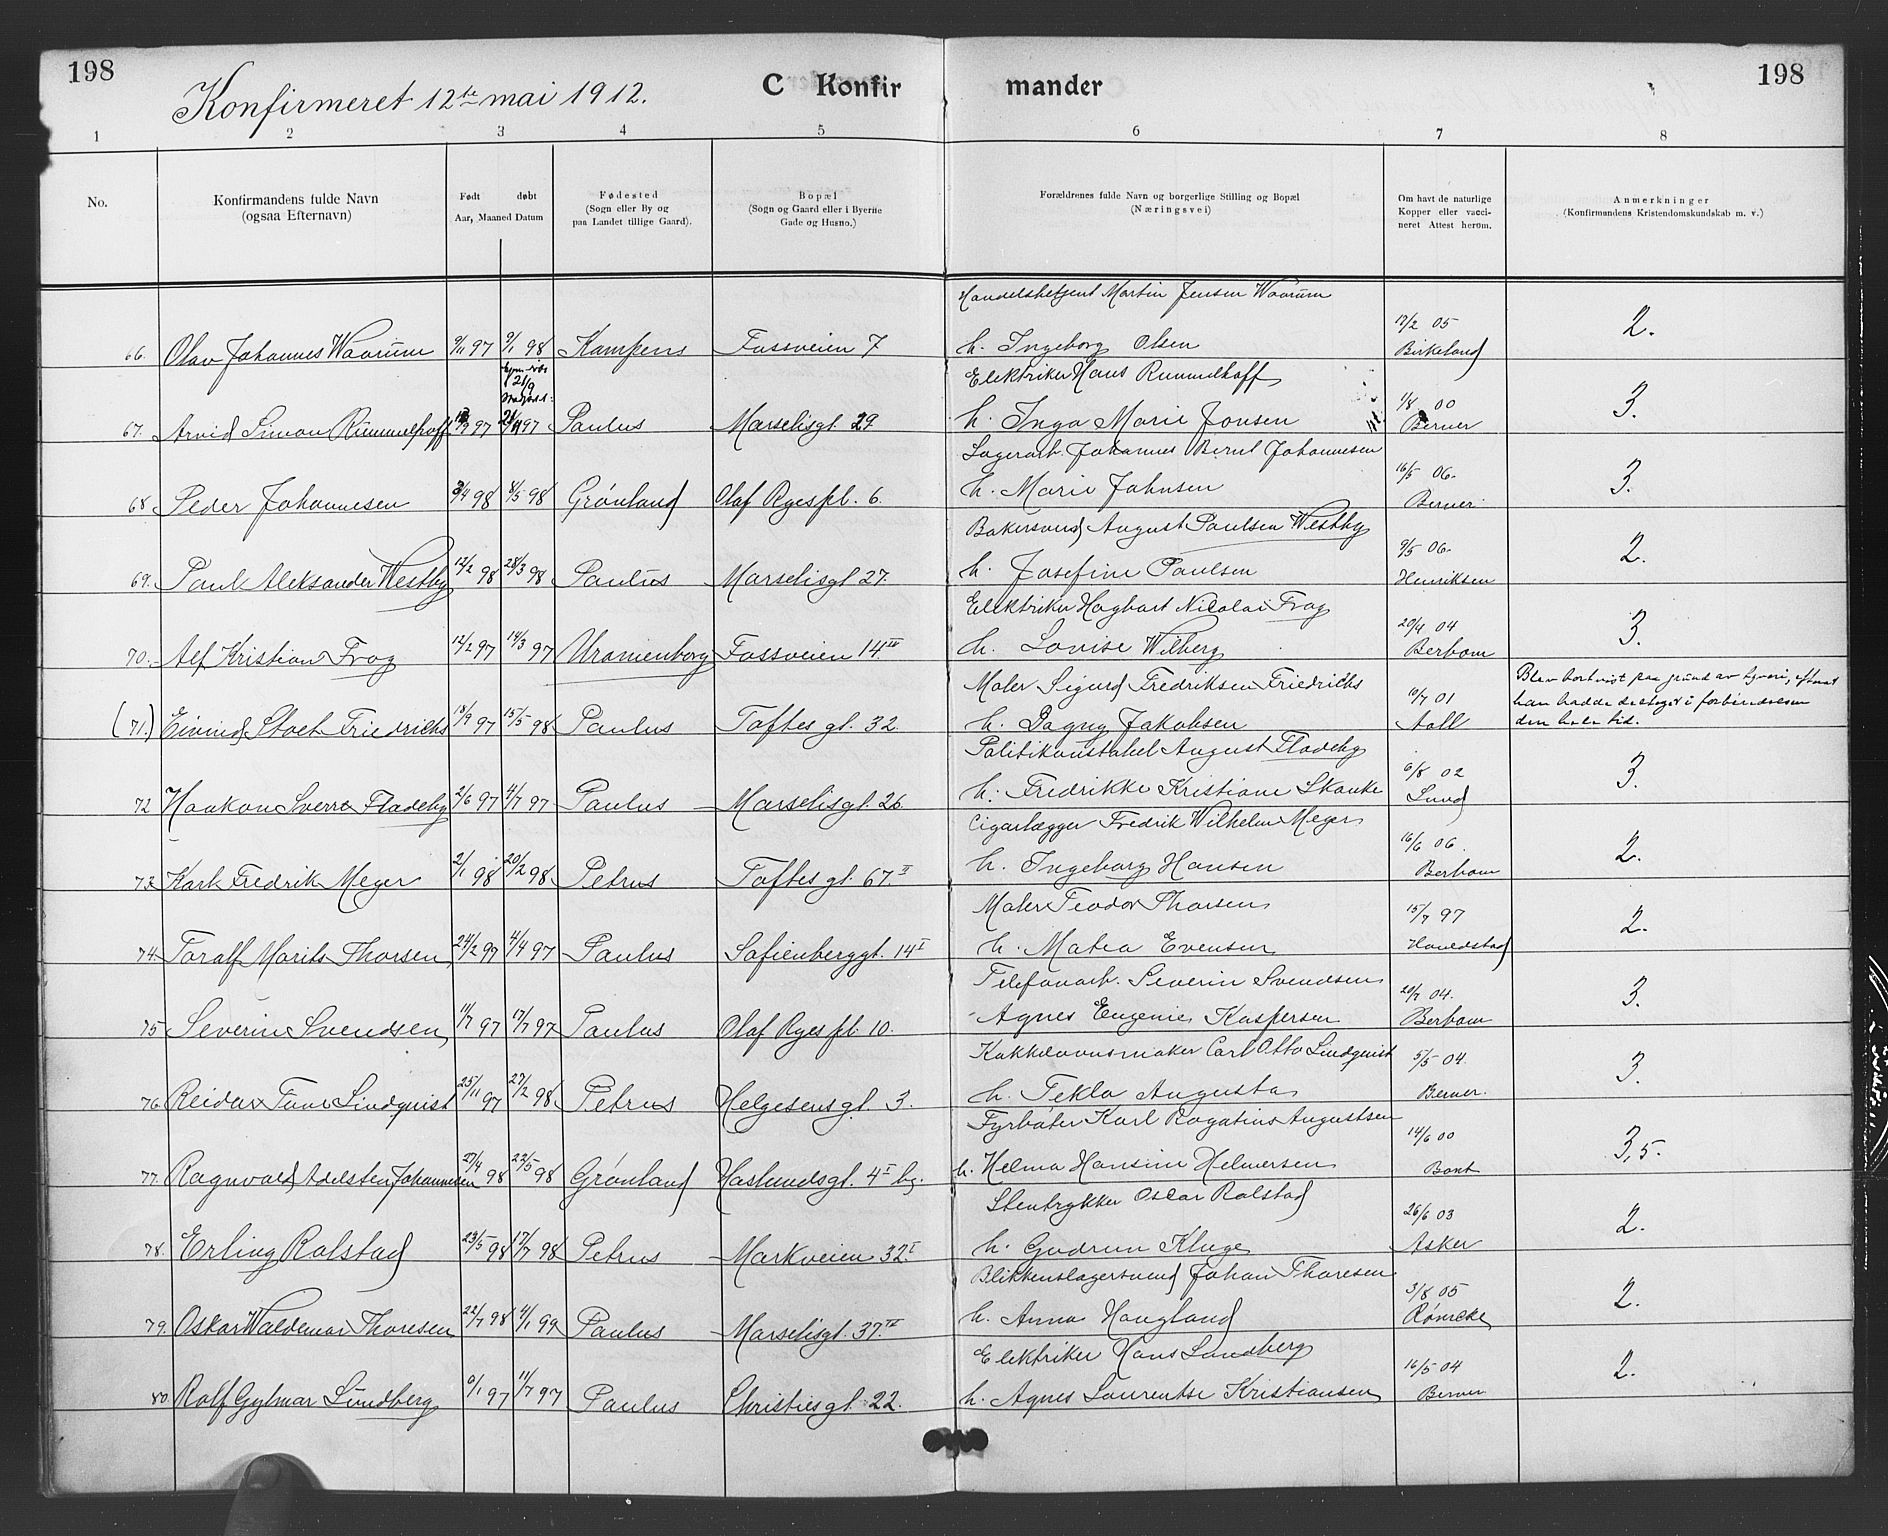 198
Konfirmeret 12te mai 1912.
C Konfir mander
198
1 2 3 4 5 6 7 8
No.
Konfirmandens fulde Navn
(ogsaa Efternavn)
Født døbt
Aar, Maaned Datum
Fødested
(Sogn eller By og
paa Landet tillige Gaard).
Bopæl
(Sogn og Gaard eller i Byerne
Gade og Husno.)
Forældrenes fulde Navn og borgerlige Stilling og Bopæl
(Næringsvei)
Om havt de naturlige
Kopper eller vacci-
neret Attest herom.
Anmerkninger
(Konfirmandens Kristendomskundskab m. v.)
Handelsbetjent Martin Jensen Waarum
66. Olav Johannes Waarum 9/11 97 9/1 98 Kampens Fossveien 7 h. Ingeborg Olsen 17/2 05 Birkeland 2.
Elektriker Hans Rummelhoff
67. Arvid Simon Rummelhoff 97 97 Paulus Marselisgt. 29 h. Inga Marie Jonsen 1/8 00 Berner 3.
Lagerarb. Johannes Bernt Johannesen
68. Peder Johannesen 3/4 98 8/5 98 Grønland Olaf Ryespl. 6. h. Marie Johnsen 16/5 06. Berner 3.
Bakersvend August Paulsen Westby
69. Paul Aleksander Westby 12/2 98 28/3 98 Paulus Marselisgt 27. h. Josefine Paulsen 9/5 06. Henriksen 2.
Elektriker Hagbart Nikolai Frog
70. Alf Kristian Frog 12/2 97 14/3 97 Uranienborg Fossveien 14 IV h. Lovise Wilberg 20/4 04 Berbom 3.
Maler Sigurd Fredriksen Friedrichs
(71.) Eivind Stoet Friedrichs 18/9 97 15/5 98 Paulus Toftes gt. 32. h. Dagny Jakobsen 10/7 01 Aall
Blev bortvist paa grund av tyveri, efterat
han hadde deltaget i forberedelsen
den hele tid.
Politikonstabel August Fladeby
72 Haakon Sverre Fladeby 2/6 97 4/7 97 Paulus Marselisgt. 26 h. Fredrikke Kristiane Skanke 6/8 02 Lund 3.
Cigarlægger Fredrik Wilhelm Meyer
73. Karl Fredrik Meyer 2/1 98 20/2 98 Petrus Toftes gt. 67. II h. Ingeborg Hansen 16/6 06. Berbom 2.
Maler Teodor Thorsen
74. Toralf Morits Thorsen 24/2 97 4/4 97 Paulus Sofienberggt. 14 I h. Matea Evensen 15/7 97 2.
Telefonarb. Severin Svendsen
75 Severin Svendsen 11/7 97 97 Paulus Olaf Ryes pl. 10. Agnes Eugenie Kaspersen 20/7 04. Berbom 3.
Kakkelovnsmaker Carl Otto Lindqvist
76. Reidar Ture Lindqvist 25/11 97 27/2 98 Petrus Helgesensgt. 3. h. Tekla Augusta 5/5 04. Berner. 3.
Fyrbøter Karl Rogatius Augustsen
77. Ragnvald Adelsten Johannesen 27/4 98 22/5 98 Grønland Haslundsgt. 4 I bg. h. Helma Hansine Helmersen 14/6 00 3,5.
Stentrykker Oscar Rolstad
78. Erling Rolstad 23/5 98 17/7 98 Petrus Markveien 32. I h. Gudrun Kluge 26/6 03 Asker 2.
Blikkenslagersvend Johan Thoresen
79. Oskar Waldemar Thoresen 22/7 98 4/1 99 Paulus Marselisgt. 37. h. Anna Haugland 3/8 05 Rømcke 2.
Elektriker Hans Sundberg
80 Rolf Gylmar Sundberg 9/1 97 11/7 97 Paulus Christiesgt. 22. h. Agnes Laurentse Kristiansen 16/5 04 Berner 2.